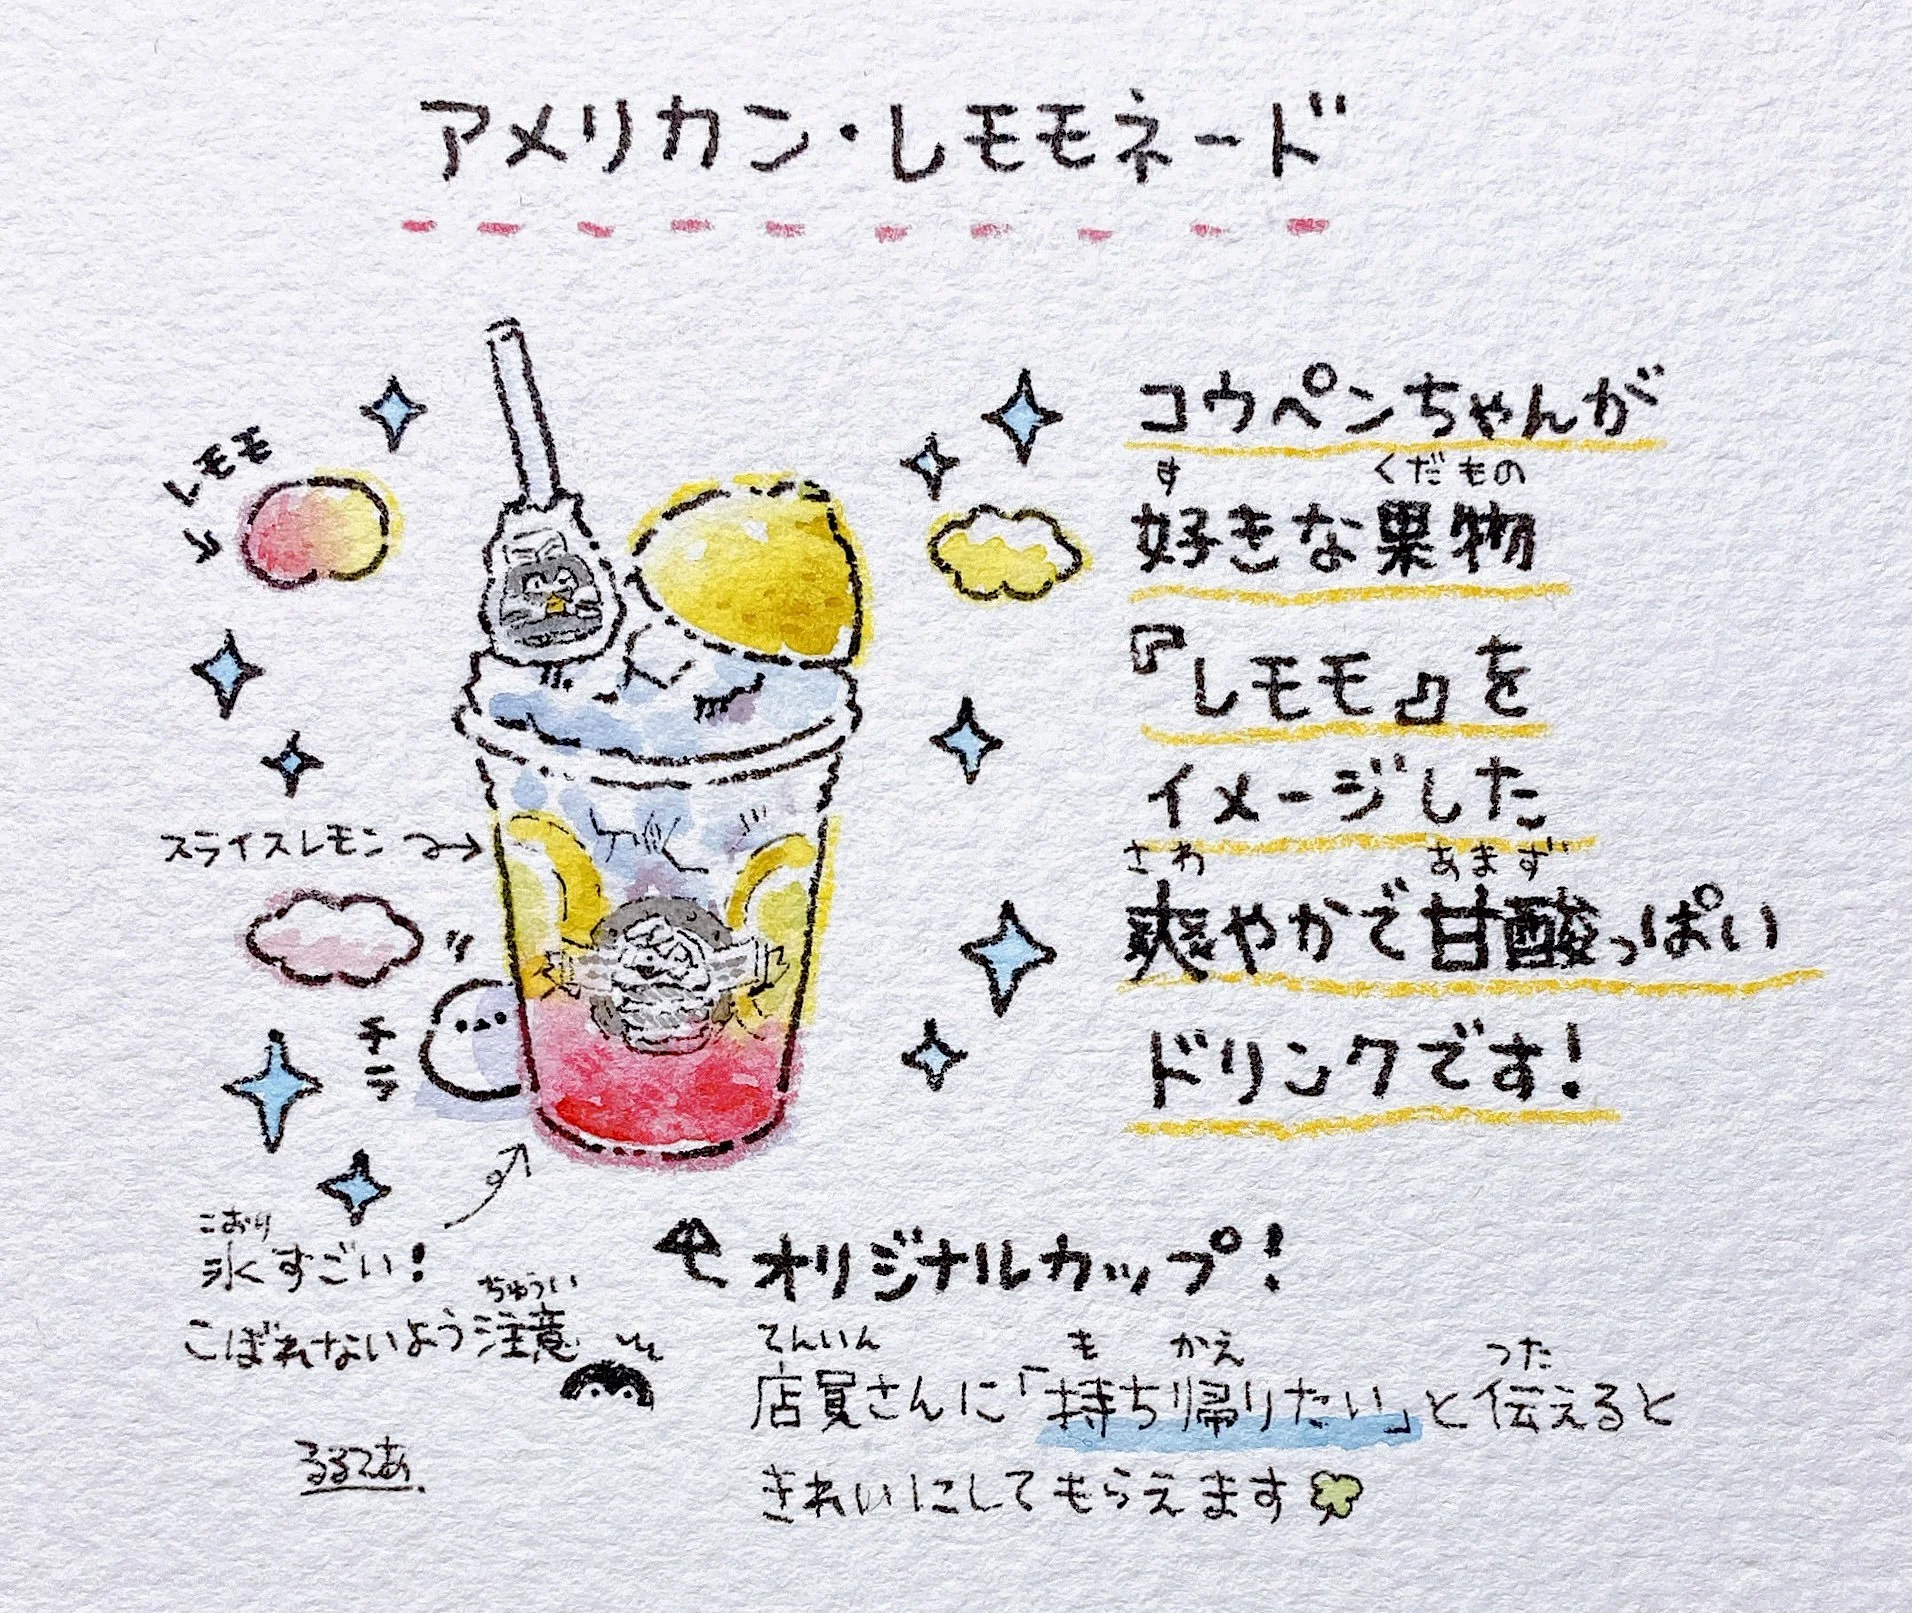 アメリカン・レモモネード
レモモ
スライスレモン
チラ
コウペンちゃんが
す くだもの
好きな果物
『レモモ』を
イメージした
さわ あまず
爽やかで甘酸っぱい
ドリンクです!
こおり
氷すごい!
ちゅうい
こぼれないよう注意
るるてあ
オリジナルカップ!
てんいん も かえ つた
店員さんに「持ち帰りたい」と伝えると
きれいにしてもらえます